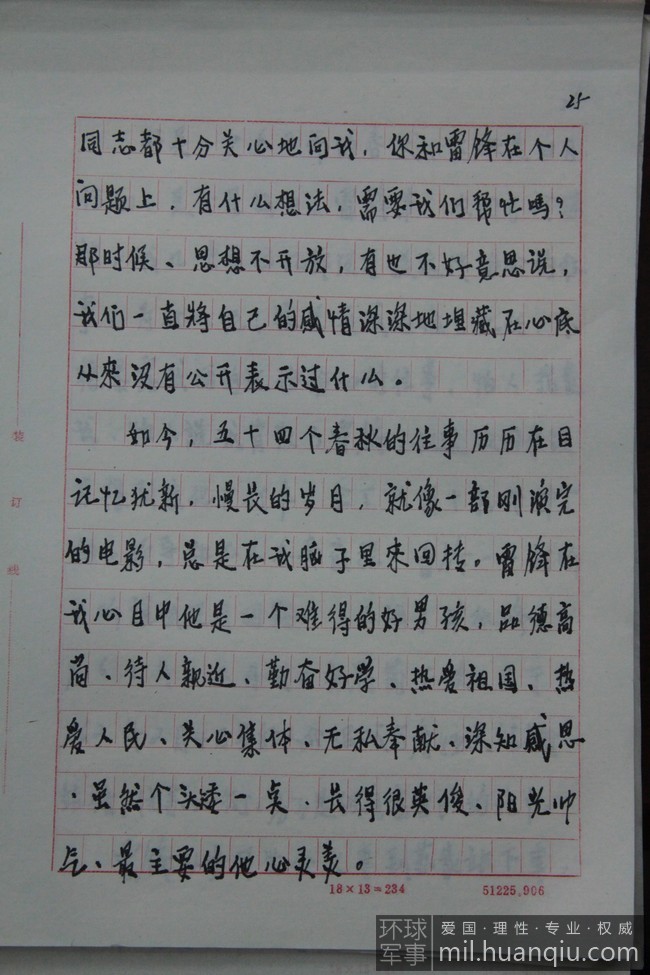 25
同志都十分关心地问我，你和雷锋在个人
问题上，有什么想法，需要我们帮忙吗？
那时候、思想不开放，有也不好意思说，
我们一直将自己的感情深深地埋藏在心底
从来没有公开表示过什么。
如今，五十四个春秋的往事历历在目
记忆犹新，慢长的岁月，就像一部刚演完
的电影，总是在我脑子里来回转。雷锋在
我心目中他是一个难得的好男孩，品德高
尚、待人亲近、勤奋好学、热爱祖国、热
爱人民、关心集体、无私奉献、深知感恩
．虽然个头矮一点、长得很英俊、阳光帅
气、最主要的他心灵美。
装
订
线
18×13=234
51225.906
环球
军事
爱国·理性·专业·权威
mil.huanqiu.com